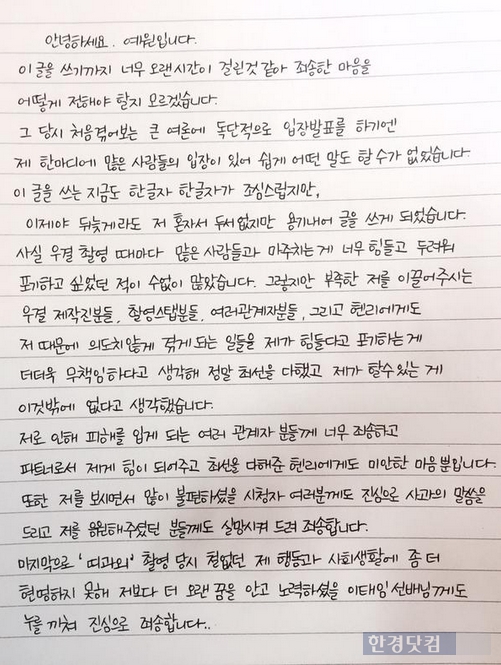 안녕하세요. 예원입니다.
이 글을 쓰기까지 너무 오랜시간이 걸린것 같아 죄송한 마음을
어떻게 전해야 할지 모르겠습니다.
그 당시 처음겪어보는 큰 여론에 독단적으로 입장발표를 하기엔
제 한마디에 많은 사람들의 입장이 있어 쉽게 어떤 말도 할 수가 없었습니다.
이 글을 쓰는 지금도 한글자 한글자가 조심스럽지만,
이제야 뒤늦게라도 저 혼자서 두서없지만 용기내어 글을 쓰게 되었습니다.
사실 우결 촬영 때마다 많은 사람들과 마주치는게 너무 힘들고 두려워
포기하고 싶었던 적이 수없이 많았습니다. 그렇지만 부족한 저를 이끌어주시는
우결 제작진분들, 촬영스탭분들, 여러관계자분들, 그리고 헨리에게도
저 때문에 의도치않게 겪게 되는 일들을 제가 힘들다고 포기하는게
더더욱 무책임하다고 생각해 정말 최선을 다했고 제가 할수있는 게
이것밖에 없다고 생각했습니다.
저로 인해 피해를 입게 되는 여러 관계자 분들께 너무 죄송하고
파트너로서 제게 힘이 되어주고 최선을 다해준 헨리에게도 미안한 마음뿐입니다.
또한 저를 보시면서 많이 불편하셨을 시청자 여러분께도 진심으로 사과의 말씀을
드리고 저를 응원해주셨던 분들께도 실망시켜 드려 죄송합니다.
마지막으로 '띠과외' 촬영 당시 철없던 제 행동과 사회생활에 좀 더
현명하지 못해 저보다 더 오랜 꿈을 안고 노력하셨을 이태임 선배님께도
누를 끼쳐 진심으로 죄송합니다..
한경닷컴